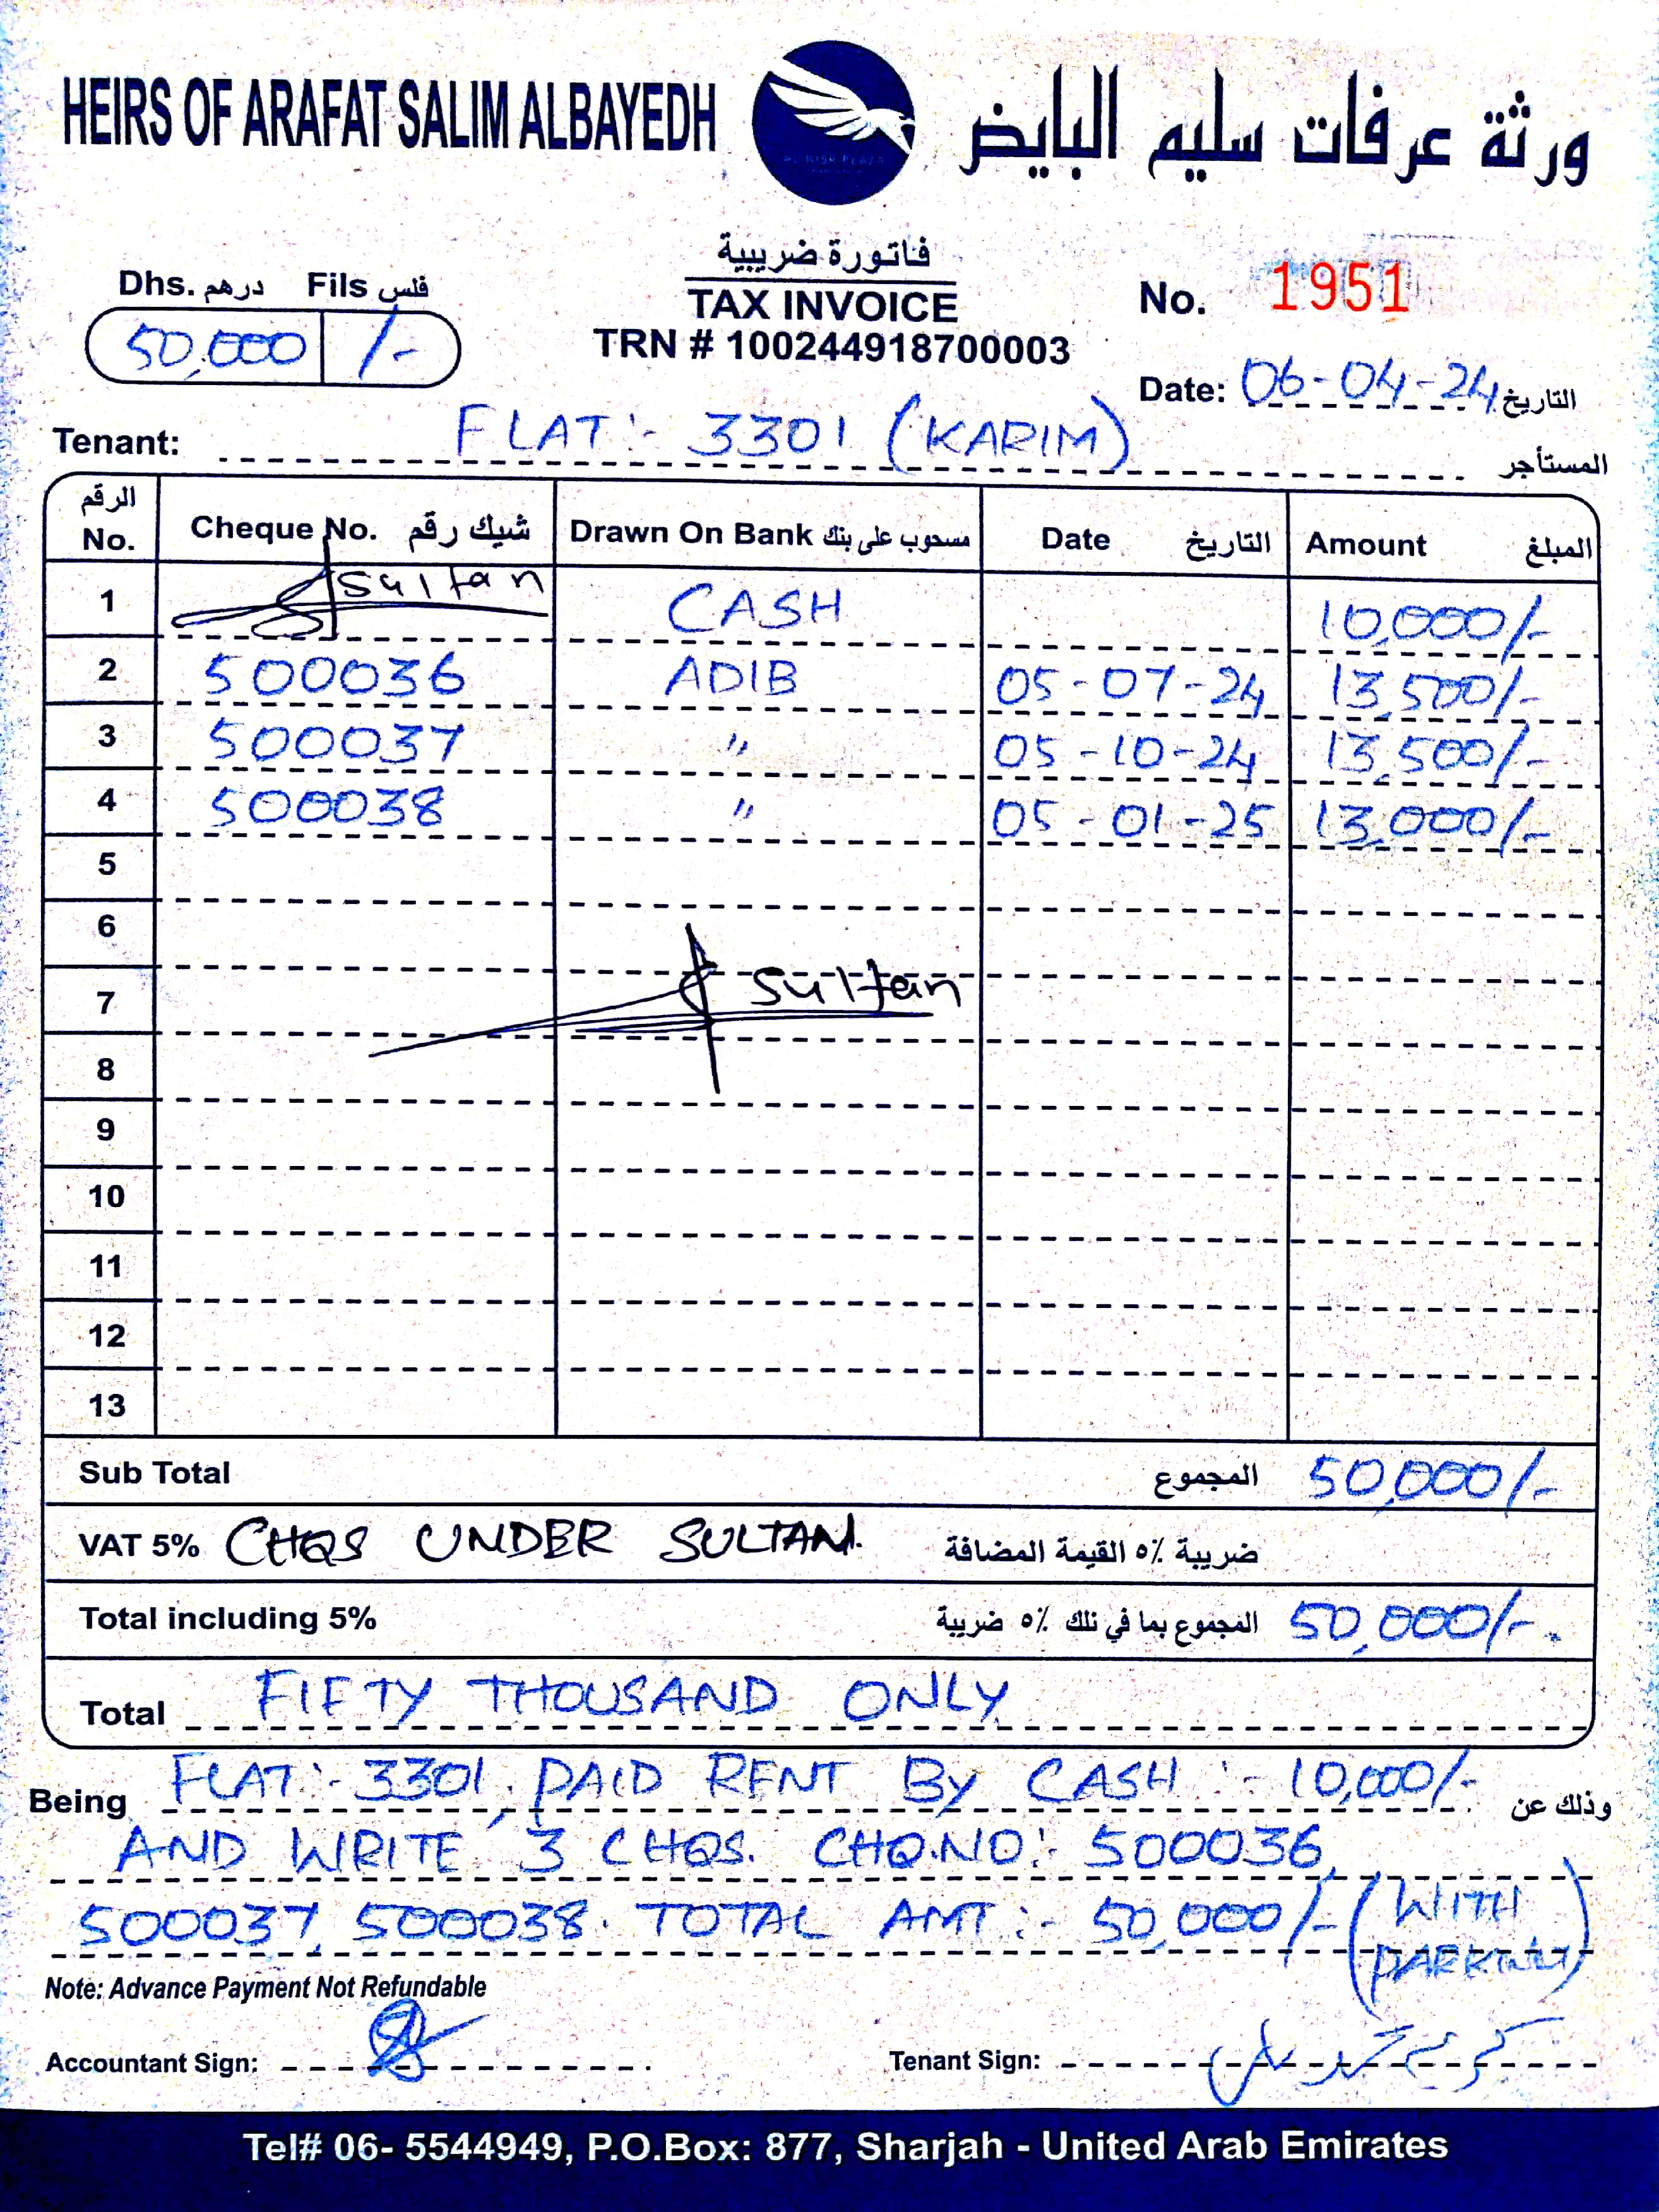 HEIRS OF ARAFAT SALIM ALBAYEDH
ورثة عرفات سليم البايض
Dhs. درهم Fils فلس
50,000 /-
فاتورة ضريبية
TAX INVOICE
TRN # 100244918700003
No. 1951
Date: 06-04-24 التاريخ
Tenant: FLAT:- 3301 (KARIM) المستأجر
الرقم No. Cheque No. شيك رقم Drawn On Bank مسحوب على بنك Date التاريخ Amount المبلغ
1 Sultan CASH 10,000/-
2 500036 ADIB 05-07-24 13,500/-
3 500037 " 05-10-24 13,500/-
4 500038 " 05-01-25 13,000/-
5
6
7 Sultan
8
9
10
11
12
13
Sub Total المجموع 50,000/-
VAT 5% CHQS UNDER SULTAN. ضريبة ٥٪ القيمة المضافة
Total including 5% المجموع بما في تلك ٥٪ ضريبة 50,000/-.
Total FIFTY THOUSAND ONLY
Being FLAT:- 3301, PAID RENT By CASH :- 10,000/- وذلك عن
AND WRITE 3 CHQS. CHQ.NO:- 500036,
500037, 500038. TOTAL AMT:- 50,000/- (WITH
PARKING)
Note: Advance Payment Not Refundable
Accountant Sign: Tenant Sign:
Tel# 06- 5544949, P.O.Box: 877, Sharjah - United Arab Emirates